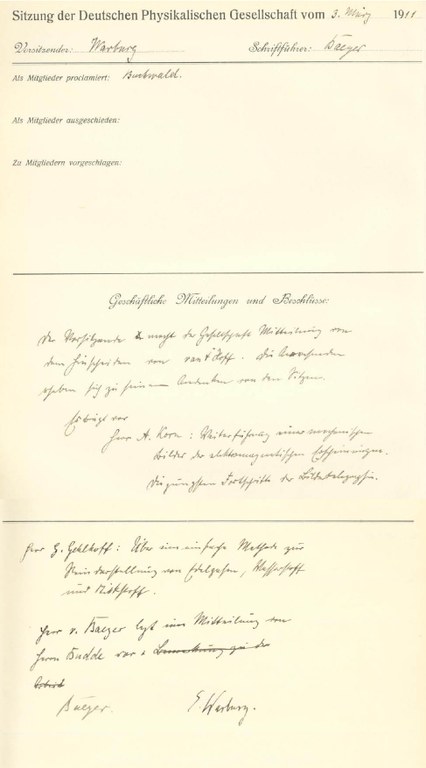 Sitzung der Deutschen Physikalischen Gesellschaft vom 3. März 1911
Vorsitzender: Warburg Schriftführer: Baeyer
Als Mitglieder proclamiert: Buchwald.
Als Mitglieder ausgeschieden:
Zu Mitgliedern vorgeschlagen:
Geschäftliche Mitteilungen und Beschlüsse:
Der Vorsitzende macht der Gesellschaft Mitteilung von
dem Hinscheiden von van't Hoff. Die Anwesenden
erheben sich zu seinem Andenken von den Sitzen.
Es trägt vor
Herr A. Korn: Weiterführung eines mechanischen
Bildes der elektromagnetischen Erscheinungen.
Die jüngsten Fortschritte der Bildtelegraphie.
Herr G. Gehlhoff: Über eine einfache Methode zur
Reindarstellung von Edelgasen, Wasserstoff
und Stickstoff.
Herr v. Baeyer legt eine Mitteilung von
Herrn Budde vor Bemerkung zu der
Arbeit
Baeyer. E. Warburg.